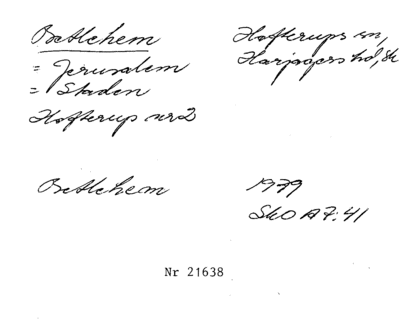 Betlehem
= Jerusalem
= Staden
Hofterup nr 2
Hofterups sn,
Harjagers hd, Sk
Betlehem
1979
SkO A 7:41
Nr 21638